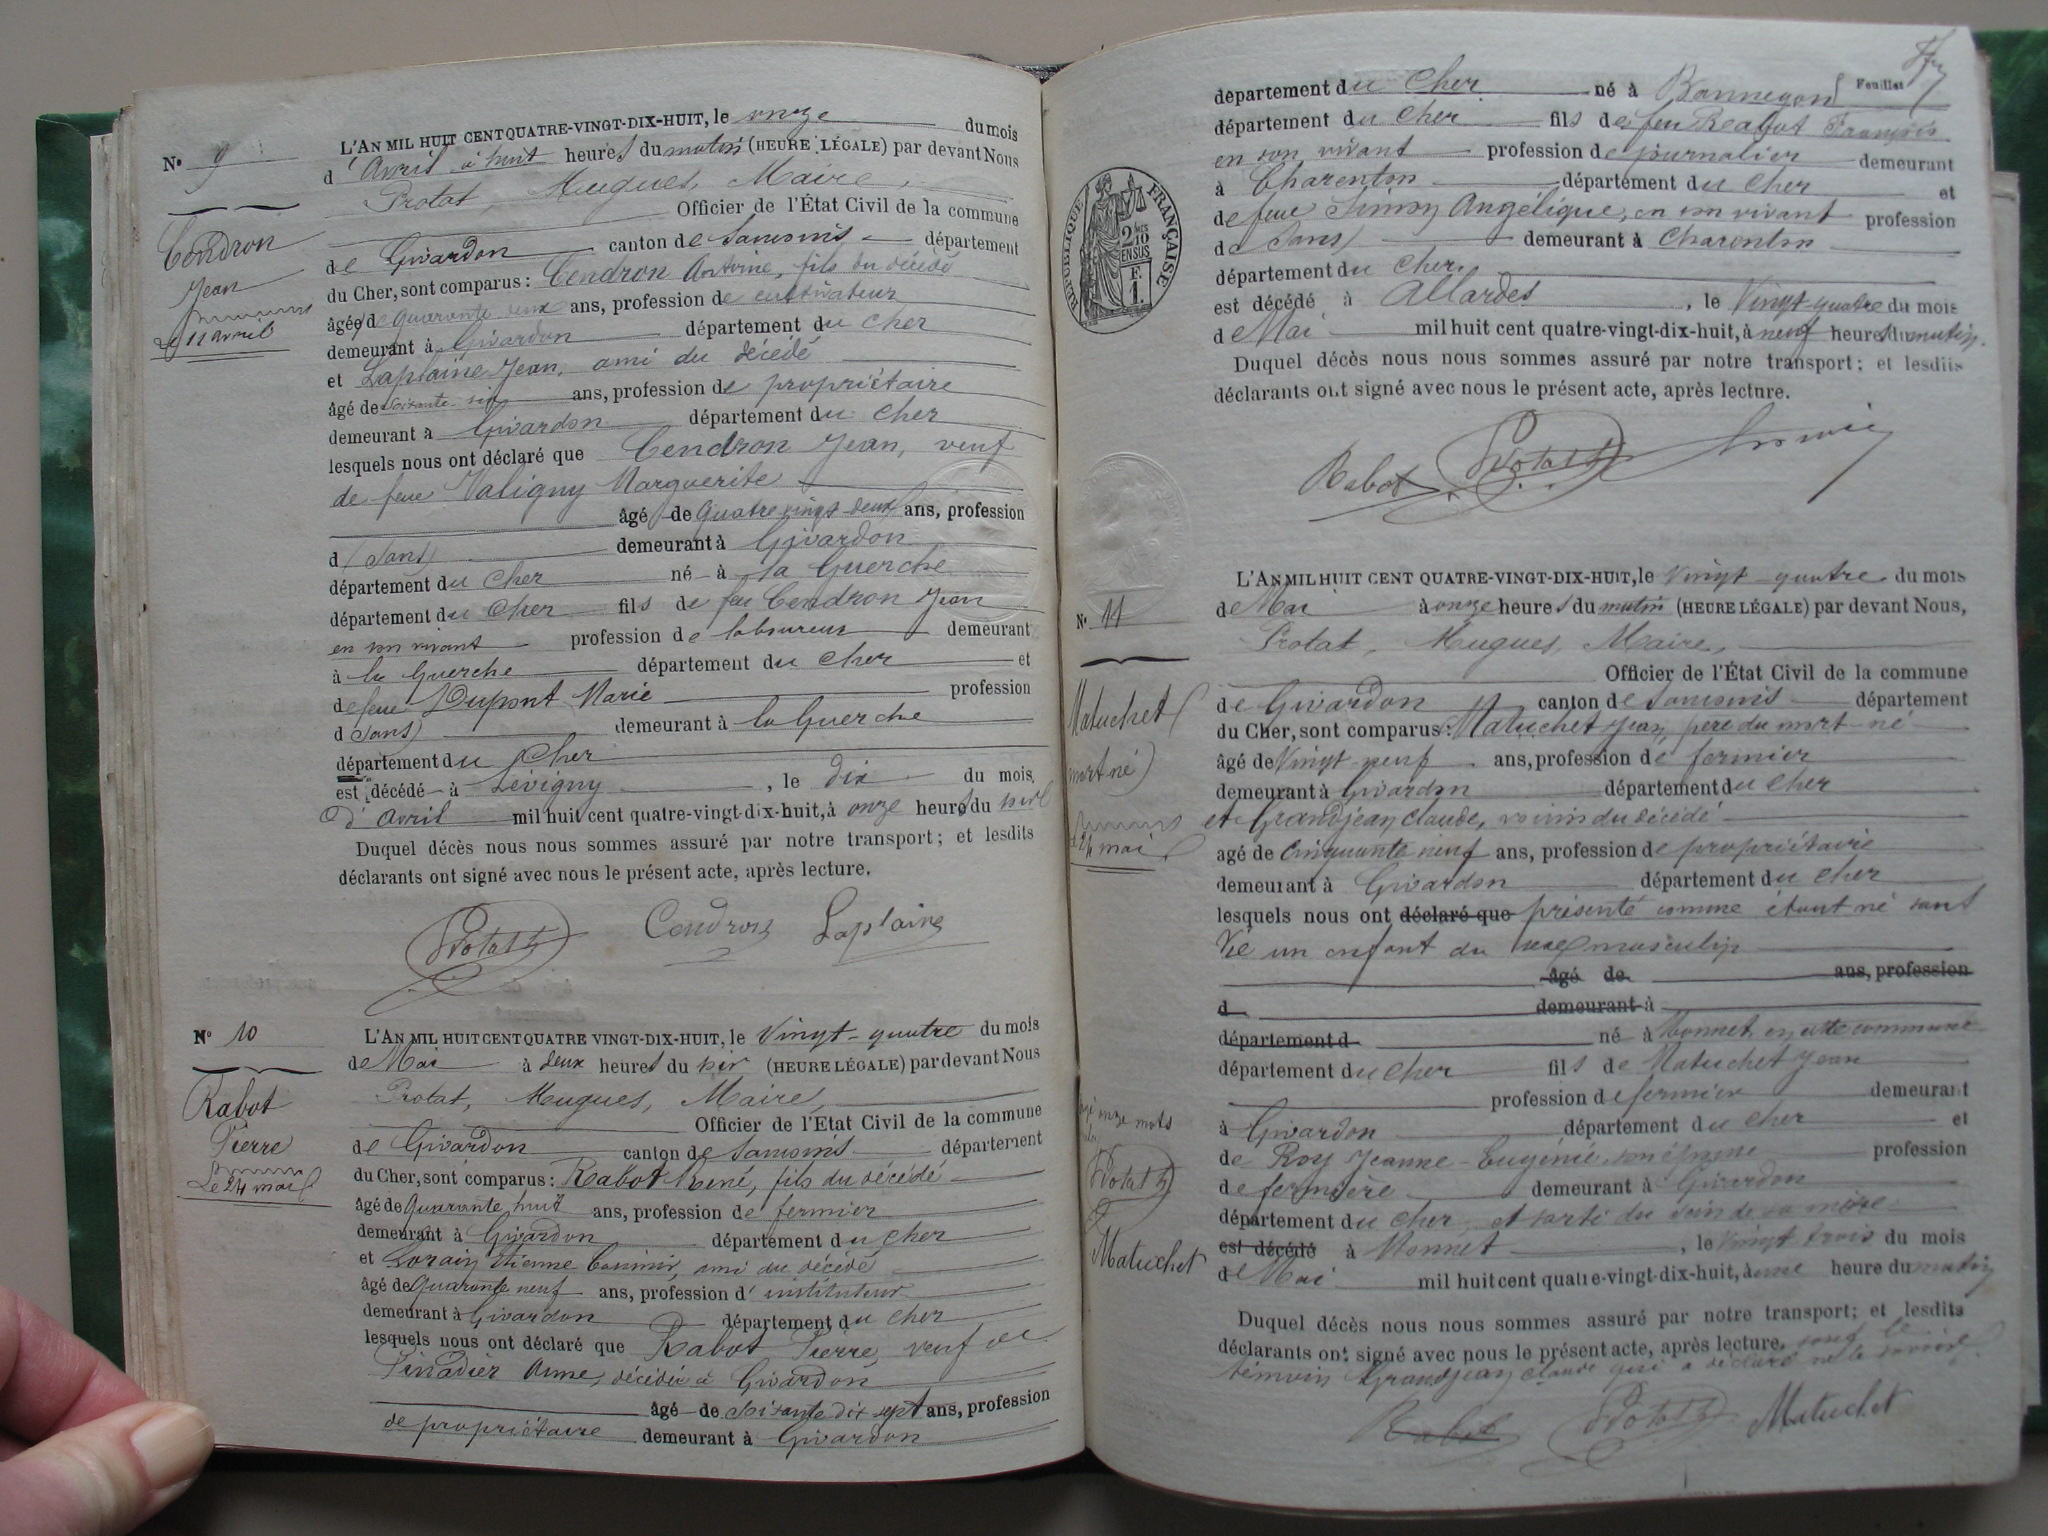 N° 9
Cendron
Jean
Le 11 avril
L'AN MIL HUIT CENT QUATRE-VINGT-DIX-HUIT, le onze du mois
d'Avril à huit heures du matin (HEURE LÉGALE) par devant Nous
Protat, Hugues, Maire,
Officier de l'État Civil de la commune
de Givardon canton de Sancoins département
du Cher, sont comparus : Cendron Antoine, fils du décédé
âgé de quarante deux ans, profession de cultivateur
demeurant à Givardon département du Cher
et Laplaine Jean, ami du décédé
âgé de soixante six ans, profession de propriétaire
demeurant à Givardon département du Cher
lesquels nous ont déclaré que Cendron Jean, veuf
de feue Valigny Marguerite
âgé de quatre vingt deux ans, profession
d (sans) demeurant à Givardon
département du Cher né à la Guerche
département du Cher fils de feu Cendron Jean
en son vivant profession de laboureur demeurant
à la Guerche département du Cher et
de feue Dupont Marie profession
d (sans) demeurant à la Guerche
département du Cher
est décédé à Lévigny, le dix du mois
d'Avril mil huit cent quatre-vingt-dix-huit, à onze heures du soir
Duquel décès nous nous sommes assuré par notre transport ; et lesdits
déclarants ont signé avec nous le présent acte, après lecture.
Protat Cendron Laplaine
N° 10
Rabot
Pierre
Le 24 mai
L'AN MIL HUIT CENT QUATRE VINGT-DIX-HUIT, le vingt-quatre du mois
de Mai à deux heures du soir (HEURE LÉGALE) par devant Nous
Protat, Hugues, Maire,
Officier de l'État Civil de la commune
de Givardon canton de Sancoins département
du Cher, sont comparus : Rabot René, fils du décédé
âgé de quarante huit ans, profession de fermier
demeurant à Givardon département du Cher
et Lorain Etienne Casimir, ami du décédé
âgé de quarante neuf ans, profession d'instituteur
demeurant à Givardon département du Cher
lesquels nous ont déclaré que Rabot Pierre, veuf de
Anne, décédée à Givardon
âgé de soixante dix sept ans, profession
de propriétaire demeurant à Givardon
Feuillet
département du Cher né à Bannegon
département du Cher fils de feu Rabot François
en son vivant profession de journalier demeurant
à Charenton département du Cher et
de feue Simon Angélique, en son vivant profession
de (sans) demeurant à Charenton
département du Cher,
est décédé à Allardes, le vingt-quatre du mois
de Mai mil huit cent quatre-vingt-dix-huit, à neuf heures du matin.
Duquel décès nous nous sommes assuré par notre transport ; et lesdits
déclarants ont signé avec nous le présent acte, après lecture.
Rabot Protat Lorain
RÉPUBLIQUE FRANÇAISE
2/10
EN SUS
F.
1.
N° 11
Matuchet
(mort né)
Le 24 mai
L'AN MIL HUIT CENT QUATRE-VINGT-DIX-HUIT, le vingt-quatre du mois
de Mai à onze heures du matin (HEURE LÉGALE) par devant Nous,
Protat, Hugues, Maire,
Officier de l'État Civil de la commune
de Givardon canton de Sancoins département
du Cher, sont comparus : Matuchet Jean, père du mort-né
âgé de vingt-neuf ans, profession de fermier
demeurant à Givardon département du Cher
et Grandjean Claude, voisin du décédé
agé de cinquante neuf ans, profession de propriétaire
demeurant à Givardon département du Cher
lesquels nous ont déclaré que présenté comme étant né sans
vie un enfant du sexe masculin
âgé de ans, profession
d demeurant à
département d né à Monnet, en cette commune
département du Cher fils de Matuchet Jean
profession de fermier demeurant
à Givardon département du Cher et
de Roy Jeanne-Eugénie, son épouse profession
de fermière demeurant à Givardon
département du Cher, et sorti du sein de sa mère
est décédé à Monnet, le vingt trois du mois
de Mai mil huit cent quatre-vingt-dix-huit, à une heure du matin
Duquel décès nous nous sommes assuré par notre transport ; et lesdits
déclarants ont signé avec nous le présent acte, après lecture, sauf le
témoin Grandjean Claude qui a déclaré ne le savoir.
Rabot Protat Matuchet
onze mots
Protat
Matuchet